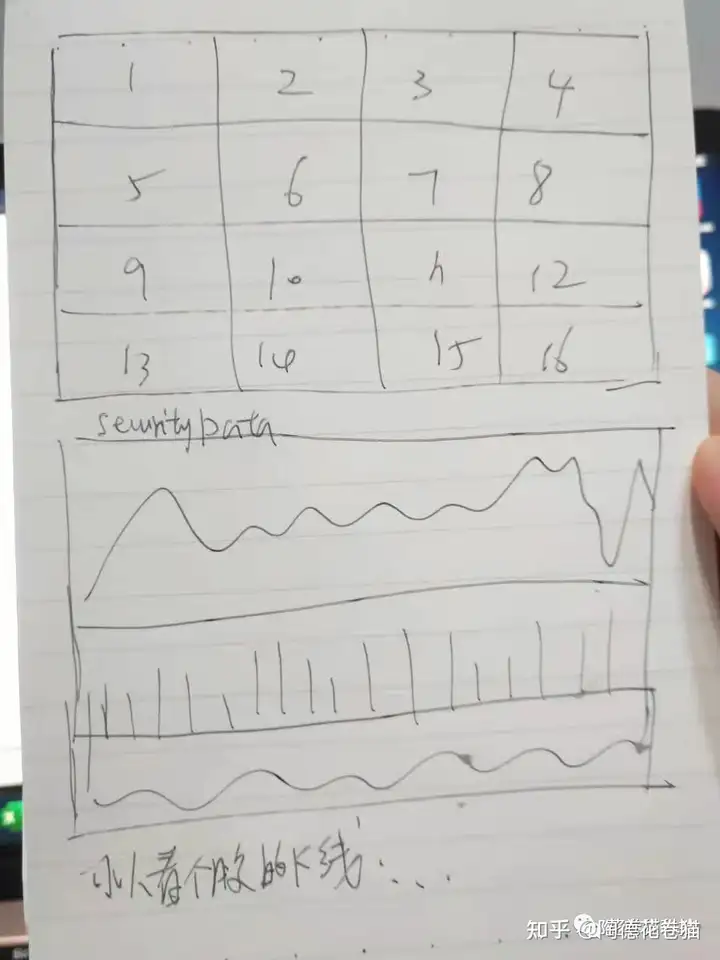 1 2 3 4
5 6 7 8
9 10 11 12
13 14 15 16
security data
可以看个股的K线...
知乎 @陶德花卷猫